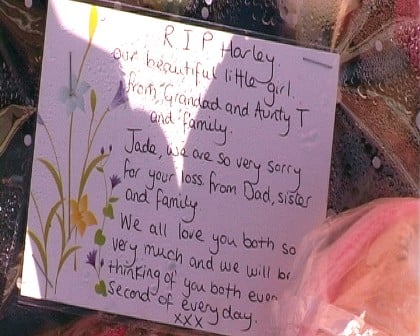 R I P Harley
our beautiful little girl.
from, Grandad and Aunty T
and family.
Jade, we are so very sorry
for your loss from Dad, sister
and family
We all love you both so
very much and we will be
thinking of you both every
second of every day.
xxx